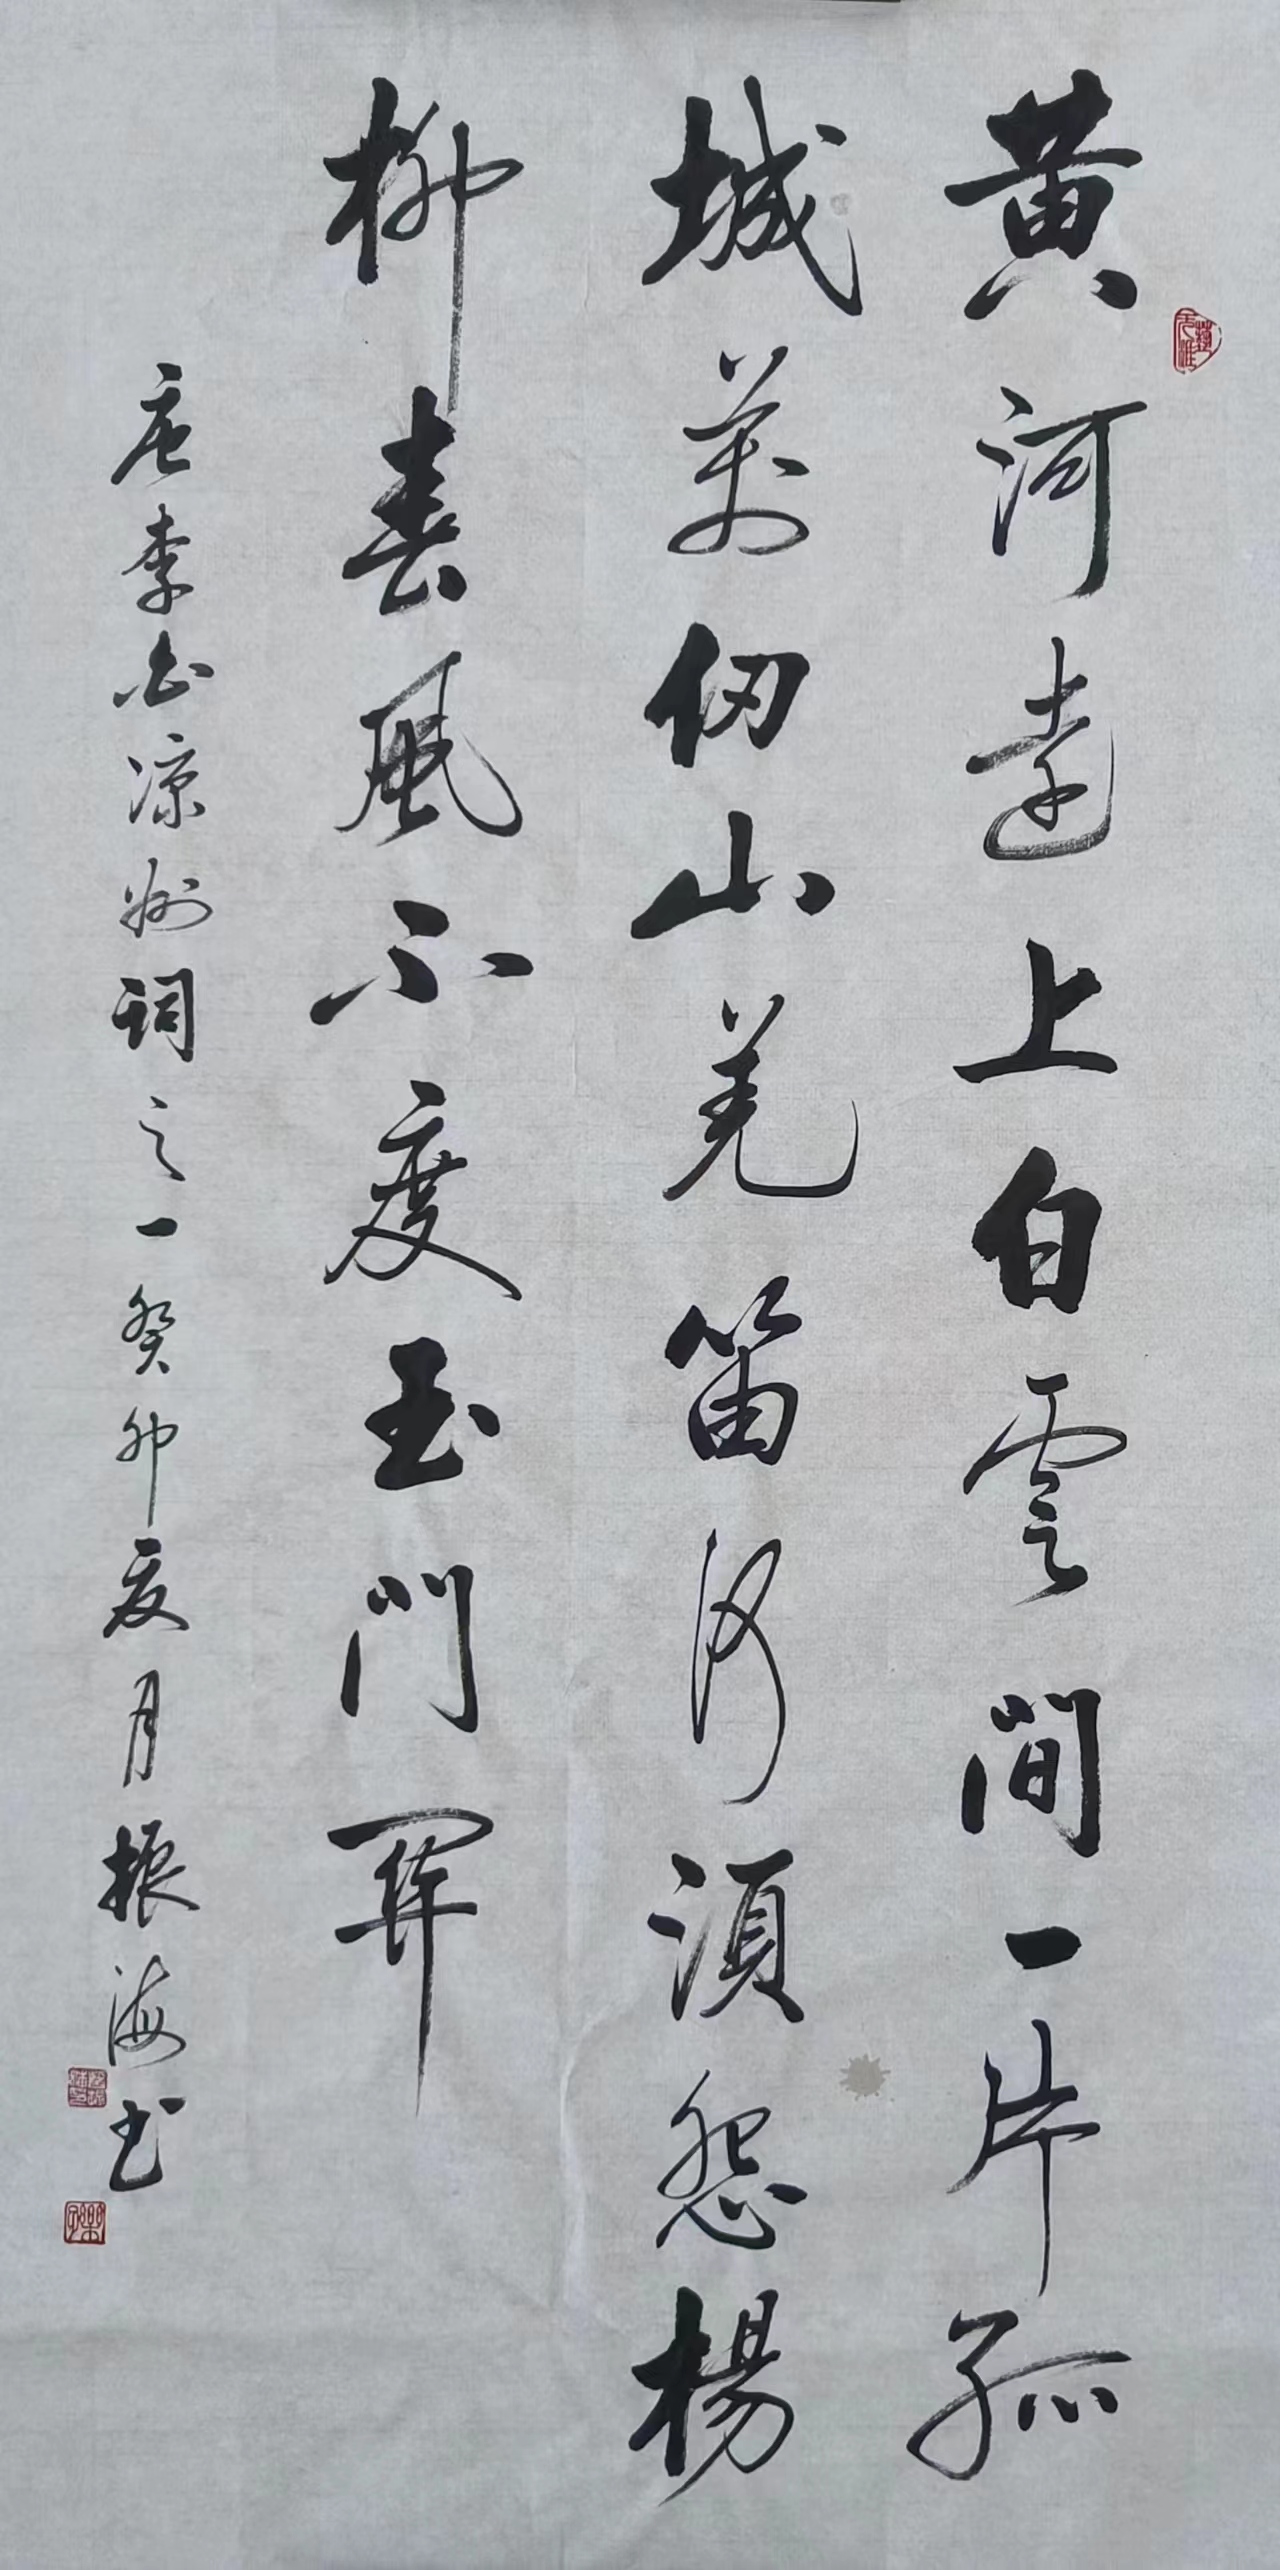 黄河遠上白雲間一片孤
城萬仞山羌笛何須怨楊
柳春風不度玉門関
唐李白凉州詞之一癸卯夏月振海书